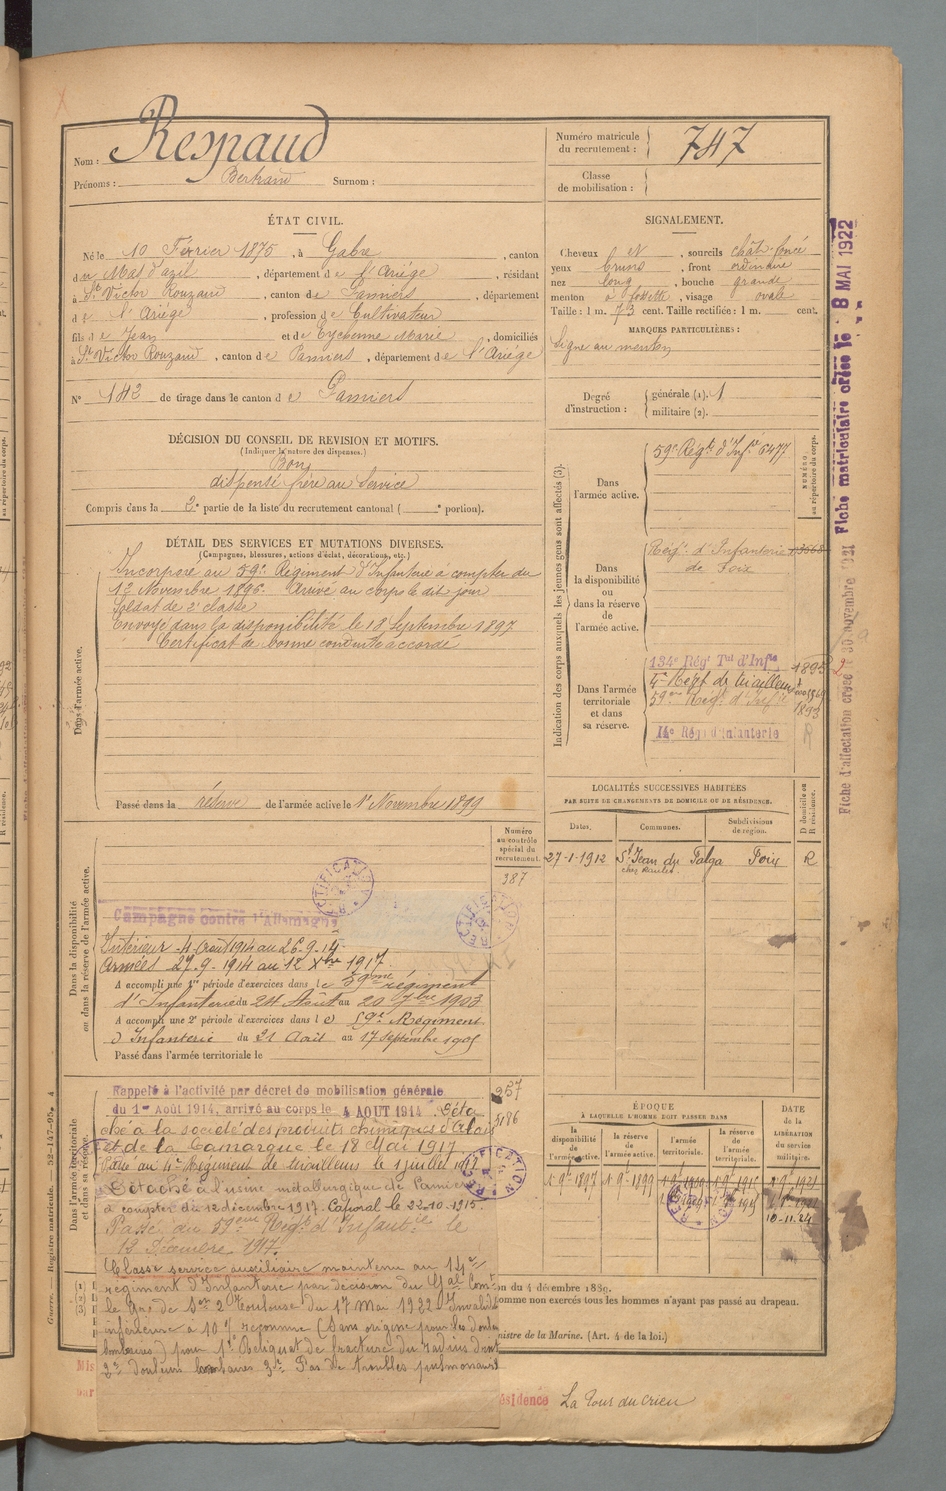 Nom : Respaud
Prénoms : Bertrand Surnom :
Numéro matricule du recrutement : 747
Classe de mobilisation :
ÉTAT CIVIL.
Né le 10 Février 1875, à Gabre, canton
du Mas d'azil, département de l'Ariège, résidant
à St Victor Rouzaud, canton de Pamiers, département
de l'Ariège, profession de Cultivateur
fils de Jean et de Eychenne Marie, domiciliés
à St Victor Rouzaud, canton de Pamiers, département de l'Ariège
N° 142 de tirage dans le canton de Pamiers
SIGNALEMENT.
Cheveux N, sourcils chât. foncé
yeux bruns, front ordinaire
nez long, bouche grande
menton à fossette, visage ovale
Taille : 1 m. 73 cent. Taille rectifiée : 1 m. cent.
MARQUES PARTICULIÈRES :
Signe au menton
Degré d'instruction : générale (1). 1
militaire (2).
DÉCISION DU CONSEIL DE REVISION ET MOTIFS.
(Indiquer la nature des dispenses.)
Bon
dispensé frère au service
Compris dans la 2e partie de la liste du recrutement cantonal ( e portion).
DÉTAIL DES SERVICES ET MUTATIONS DIVERSES.
(Campagnes, blessures, actions d'éclat, décorations, etc.)
Dans l'armée active.
Incorporé au 59e Régiment d'Infanterie à compter du
12 Novembre 1896. Arrivé au corps le dit jour
Soldat de 2e classe
Envoyé dans la disponibilité le 18 Septembre 1897
Certificat de bonne conduite accordé
Passé dans la réserve de l'armée active le 1er Novembre 1899
Indication des corps auxquels les jeunes gens sont affectés (3).
NUMÉRO au répertoire du corps.
Dans l'armée active.
59e Régt d'Infie 6477
Dans la disponibilité ou dans la réserve de l'armée active.
Régt d'Infanterie
de Foix
Dans l'armée territoriale et dans sa réserve.
134e Régt Tal d'Infie 1895
4e Régt de tirailleurs
59e Régt d'Infie 1893
14e Rég d'infanterie
LOCALITÉS SUCCESSIVES HABITÉES
PAR SUITE DE CHANGEMENTS DE DOMICILE OU DE RÉSIDENCE.
Dates. Communes. Subdivisions de région. D domicile ou R résidence.
27-1-1912 St Jean du Falga Foix R
Dans la disponibilité ou dans la réserve de l'armée active.
Numéro au contrôle spécial du recrutement.
387
RECTIFICATION
Campagne contre l'Allemagne
Intérieur 4 Aout 1914 au 26-9-14
Armées 27.9.1914 au 12 Xbre 1917
A accompli une 1re période d'exercices dans le 59me régiment
d'Infanterie du 24 Août au 20 7bre 1903
A accompli une 2e période d'exercices dans le 59e Régiment
d'Infanterie du 21 Août au 17 septembre 1905
Passé dans l'armée territoriale le
Dans l'armée territoriale et dans sa réserve.
957
5186
Rappelé à l'activité par décret de mobilisation générale
du 1er Août 1914, arrivé au corps le 4 AOUT 1914. Déta
ché à la société des produits chimiques d'Alais
et de la Camargue le 18 Mai 1917
Passé au 4e Régiment de tirailleurs le 1 juillet 1917
Détaché à l'usine métallurgique de Pamiers
à compter du 12 décembre 1917. Caporal le 22-10-1915.
Passé au 59eme Régt d'Infanterie le
12 Décembre 1917.
Classé service auxiliaire maintenu au 14e
régiment d'Infanterie par décision du Gal Comt
le Gre de Son 2 Toulouse du 17 Mai 1922. Invalidité
inférieure à 10% reconnue (Sans origine pour les douleurs
lombaires) pour 1° Reliquat de fracture du radius droit
2° douleurs lombaires 3° Pas de troubles pulmonaires
ÉPOQUE
À LAQUELLE L'HOMME DOIT PASSER DANS
la disponibilité de l'armée active. la réserve de l'armée active. l'armée territoriale. la réserve de l'armée territoriale.
DATE DE LA LIBÉRATION du service militaire.
1 9bre 1897 1 9bre 1899
10-11-24
on du 4 décembre 1889.
omme non exercés tous les hommes n'ayant pas passé au drapeau.
nistre de la Marine. (Art. 4 de la loi.)
Mis
par
ésidence La Tour du Crieu
Fiche matriculaire créée le 8 MAI 1922
Fiche d'affectation créée 30 novembre 1921
Guerre. — Registre matricule. — 52-147-95.